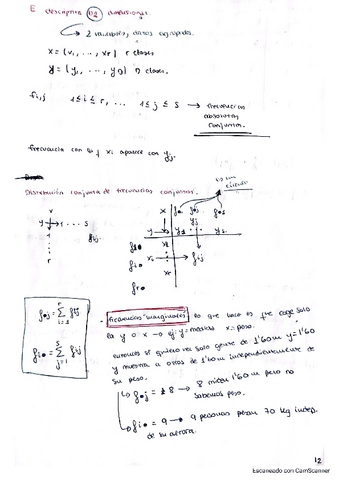 E descriptiva dimensional.
2 variables, datos agrupados.
x = (x₁, ..., xr) r clases
y = (y₁, ..., ys) clases.
fi,j 1 ≤ i ≤ r, ... 1 ≤ j ≤ s → frecuencias
absolutas
conjuntas.
frecuencia con q xi aparece con yj.
Distribución conjunta de frecuencias conjuntas.
frecuencias "marginales" lo que hace es que coge solo
la y o x → ej y = x = peso.
entonces si quiero ver solo gente de 1'60m y = 1'60
y a otros de 1'60m independientemente de
su peso.
f•j = Σ fij
fi• = Σ fij
f•j = 8 → 8 miden 1'60m pero no
sabemos peso.
fi• = 9 → 9 personas pesan 70 kg indep.
de su altura.
12
Escaneado con CamScanner